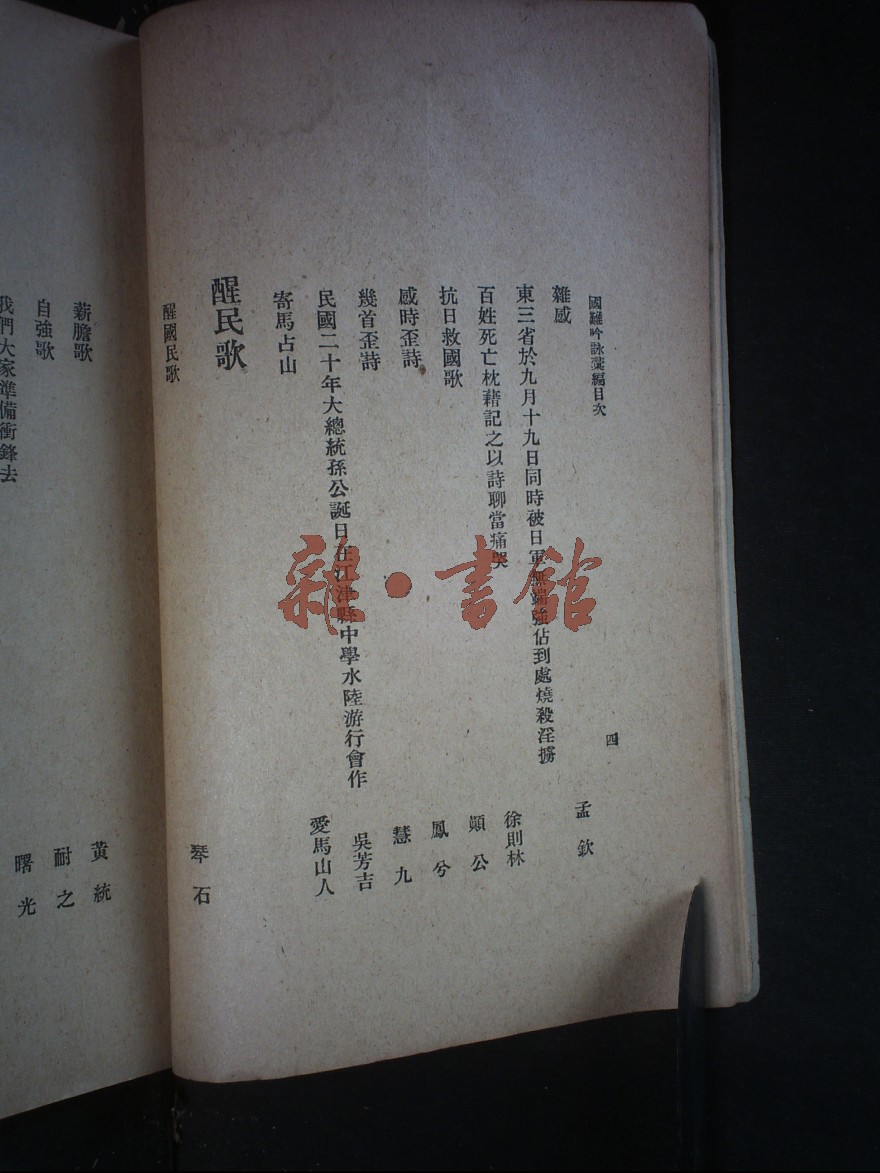 國難吟詠彙編目次 四
雜感 孟欽
東三省於九月十九日同時被日軍無端強佔到處燒殺淫擄
百姓死亡枕藉記之以詩聊當痛哭 徐則林
抗日救國歌 顛公
感時歪詩 鳳兮
幾首歪詩 慧九
民國二十年大總統孫公誕日在江津縣中學水陸游行會作 吳芳吉
寄馬占山 愛馬山人
醒民歌
醒國民歌 琴石
薪膽歌 黃統
自強歌 耐之
我們大家準備衝鋒去 曙光
雜·書館